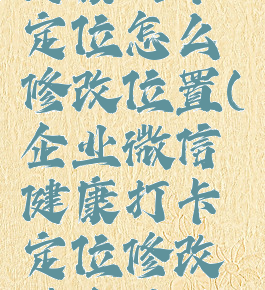 定位怎么
修改位置(
企业微信
健康打卡
定位修改